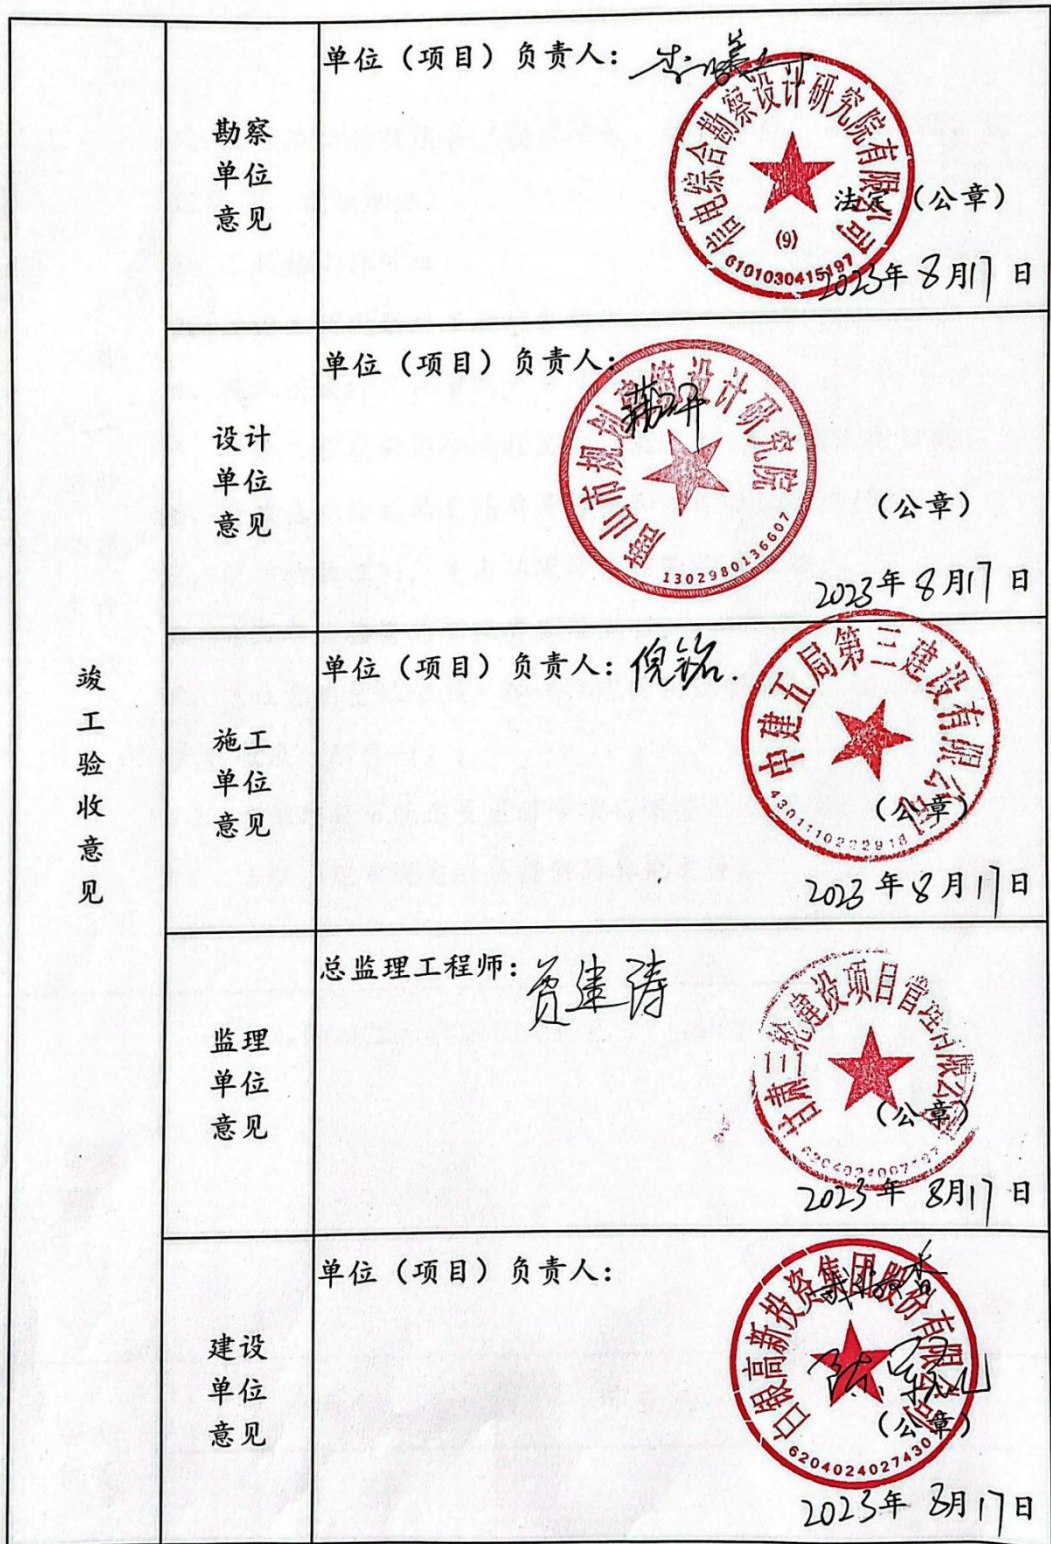 竣工验收意见
勘察单位意见
单位（项目）负责人：
信电综合勘察设计研究院有限公司
(9)
6101030415197
法定（公章）
2023年8月17日
设计单位意见
单位（项目）负责人：
唐山市规划建筑设计研究院
（公章）
2023年8月17日
施工单位意见
单位（项目）负责人：倪铭.
中建五局第三建设有限公司
4301110222918
（公章）
2023年8月17日
监理单位意见
总监理工程师：贾建涛
甘肃三轮建设项目管理有限公司
（公章）
2023年8月17日
建设单位意见
单位（项目）负责人：
白银高新投资集团股份有限公司
6204024027430
（公章）
2023年8月17日